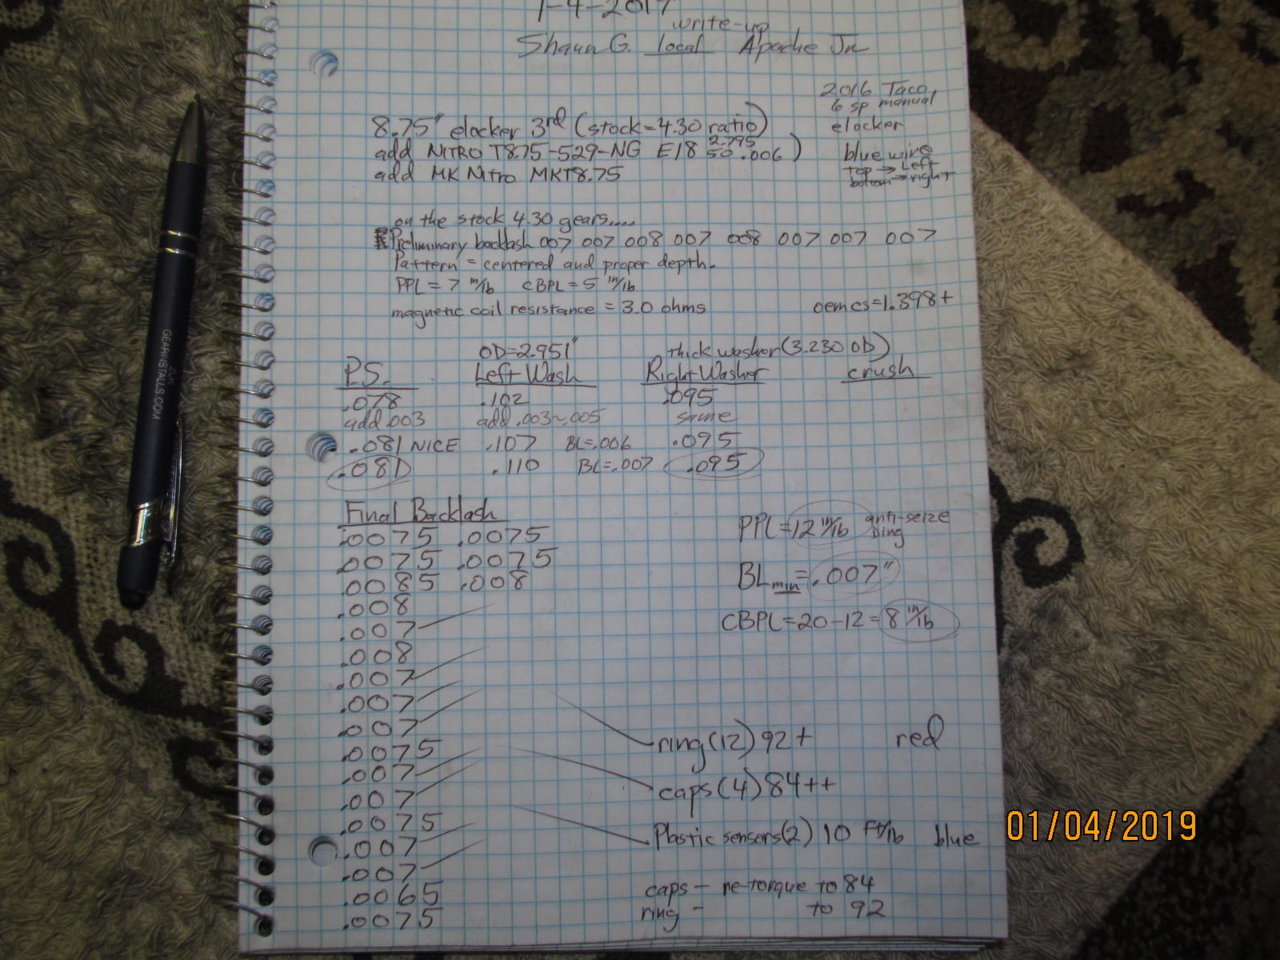 1-4-2017
write-up
Shaun G. local Apache Jn
2016 Taco
6 sp manual
elocker
8.75" elocker 3rd (stock=4.30 ratio)
add NITRO T8.75-529-NG E18 2.795 50 .006)
add MK Nitro MKT8.75
blue wire
top → left
bottom → right
on the stock 4.30 gears.....
Preliminary backlash 007 007 008 007 008 007 007 007
Pattern = centered and proper depth.
PPL = 7 in/lb CBPL = 5 in/lb
magnetic coil resistance = 3.0 ohms oem cs=1.398+
OD=2.951" thick washer (3.230 OD)
P.S. Left Wash Right Washer crush
.078 .102 .095
add .003 add .003~.005 same
.081 NICE .107 BL=.006 .095
.081 .110 BL=.007 .095
Final Backlash
.0075 .0075
.0075 .0075
.0085 .008
.008
.007
.008
.007
.007
.007
.0075
.007
.007
.0075
.007
.007
.0065
.0075
PPL=12 in/lb anti-seize
BLmin=.007"
CBPL=20-12=8 in/lb
ring(12) 92+ red
caps(4) 84++
Plastic sensors(2) 10 ft/lb blue
caps - re-torque to 84
ring - to 92
GEARINSTALLS.COM
01/04/2019